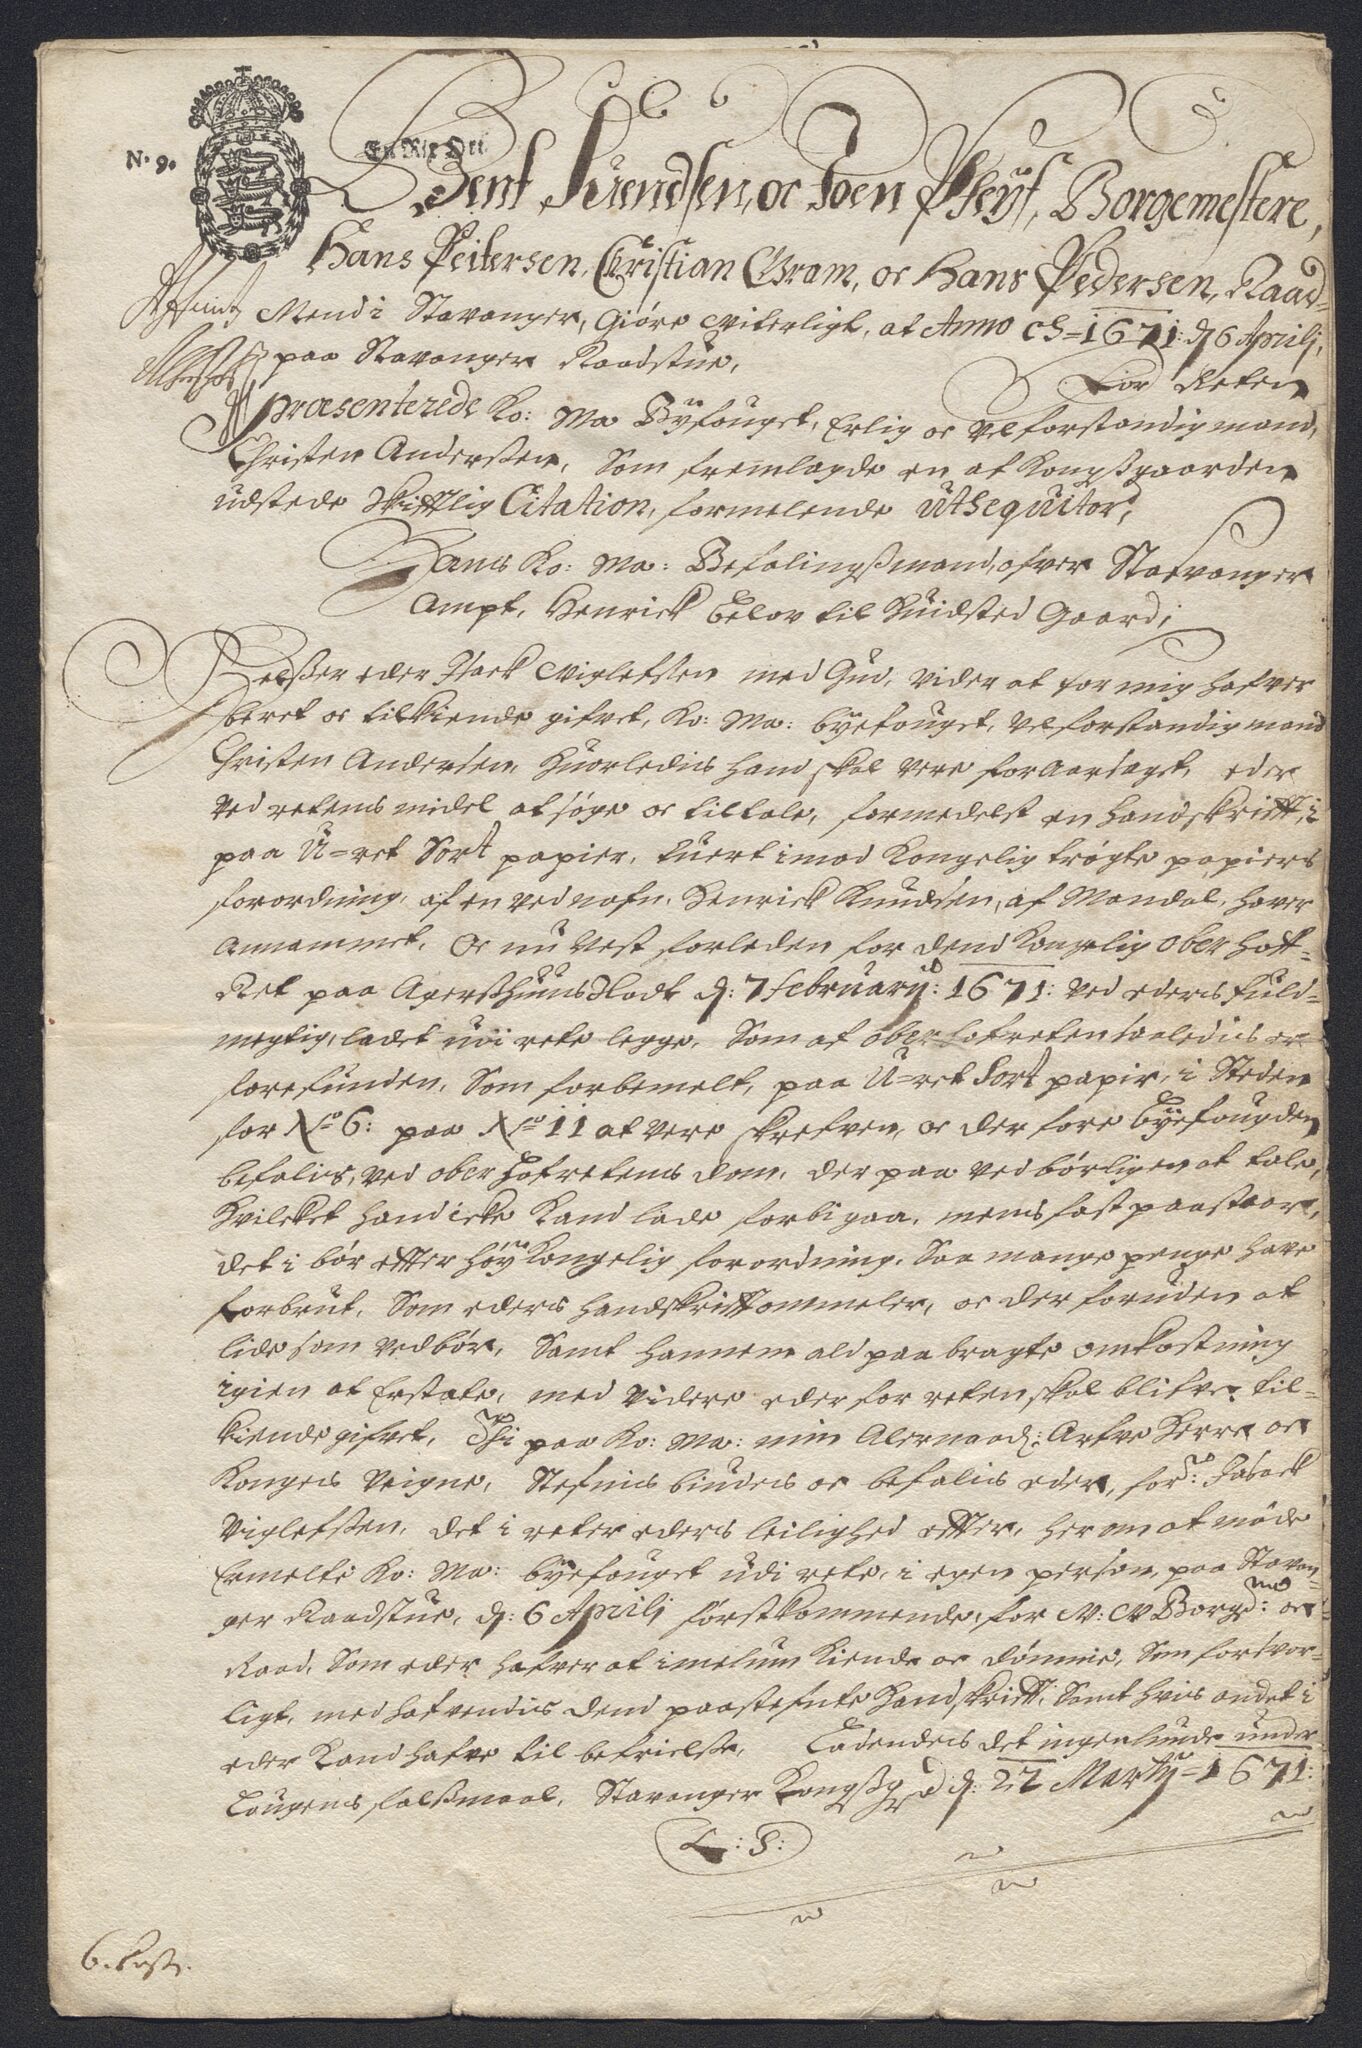 N. 9.
En Rix Ort
Bent Suendsen, oc Joen Pheyf, Borgemestere,
Hans Peitersen, Christian Gram, oc Hans Pedersen, Raad-
Mend i Stavanger, Giøre Viterligt, at Anno ch=1671: d 6 Aprilj,
paa Stavanger Raadstue,
For Reten
præsenterede Ko: Ma Byfouget, Erlig oc Velforstandig mand,
Christen Anderßen, Som fremlagde en af Kongßgaarden
udstede skrifftlig Citation, formelende Utsequitor;
Hans Ko: Ma: Befalingßmand, ofver Staevanger
Ampt, Henrick Below til Huidsted Gaard;
Helßer eder Isack Viglefsen med Gud, Vider at for mig hafver
beret oc tilkiende gifvet, Ko: Ma: byefouget, Velforstandig mand
Christen Andersen, huorledis hand skal vere foraarsaget, eder
ved retens midel at søge oc tiltale, formedelst en handskrifft, i
paa U=ret Sort papier, tuert imod Kongelig trøgte papiers
forordning, af en ved nafn, Henrick Knudsen, af Mandal, haver
Annammet, Oc nu Vest forleden for dend Kongelig ober hoff-
Ret paa AgersHuus Slodt d: 7 february: 1671: ved eders fuld-
megtig, ladet udi rete legge, Som af ober hofreten saaledis er
forefunden, Som forbemelt, paa U=ret Sort papir, i Steden
for No 6: paa No 11 at vere skrefven, oc derfore byefougden
befalis, ved ober Hofretens dom, der paa ved børligen at tale,
Hvilcket hand icke kand lade forbigaa, mens fast paastaar,
det i bør effter høy Kongelig forordning, Saa mange penge have
forbrut, Som eders handskrifft ommeler, oc der foruden at
lide som vedbør, Samt hannem ald paa bragte omkostning
igien at Erstate, med Videre eder for reten skal blifve til-
kiende gifvet, Thi paa Ko: Ma: min Alernaad: Arfve Herre oc
Konges Veigne, Stefnis biudes oc befalis eder, for: Isaack
Viglefßen, det i reter eders leilighed effter, her om at møde
Ermelte Ko: Ma: byefouget udi rete, i egen person, paa Stavan-
ger Raadstue, d: 6 Aprilj førstkommende, for M: W Borgd: oc
Raad, Som eder hafver at imelum kiende oc dømme, Som forsvor-
ligt, med hafvendis dend paastefnte handskrifft, Samt hvis andet i
eder kand hafve til befrielße, Ladendes det ingenlunde under
Laugens falßmaal, Stavanger Kongßg d: 22 Marty=1671:
L: S: